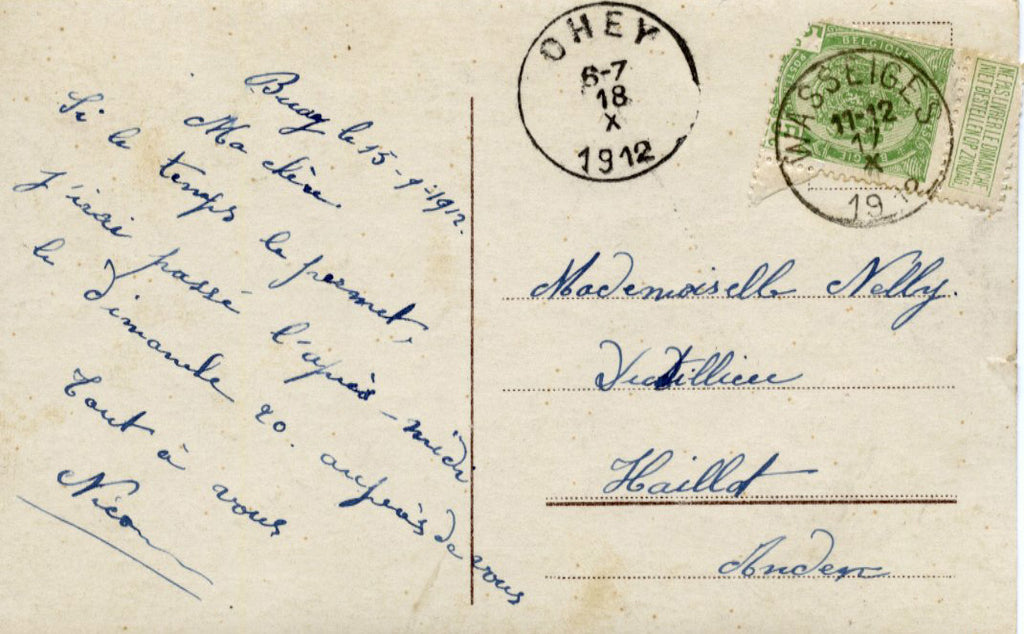 le 15-9-1912.
Ma chère.
Si le temps le permet,
j'irai passé l'après-midi
le dimanche 20. auprès de vous
Tout à vous
OHEY
6-7
18
X
1912
BELGIQUE
WASSEIGES
11-12
17
X
1912
NE PAS LIVRER LE DIMANCHE
NIET BESTELLEN OP ZONDAG
Mademoiselle Nelly.
Haillot